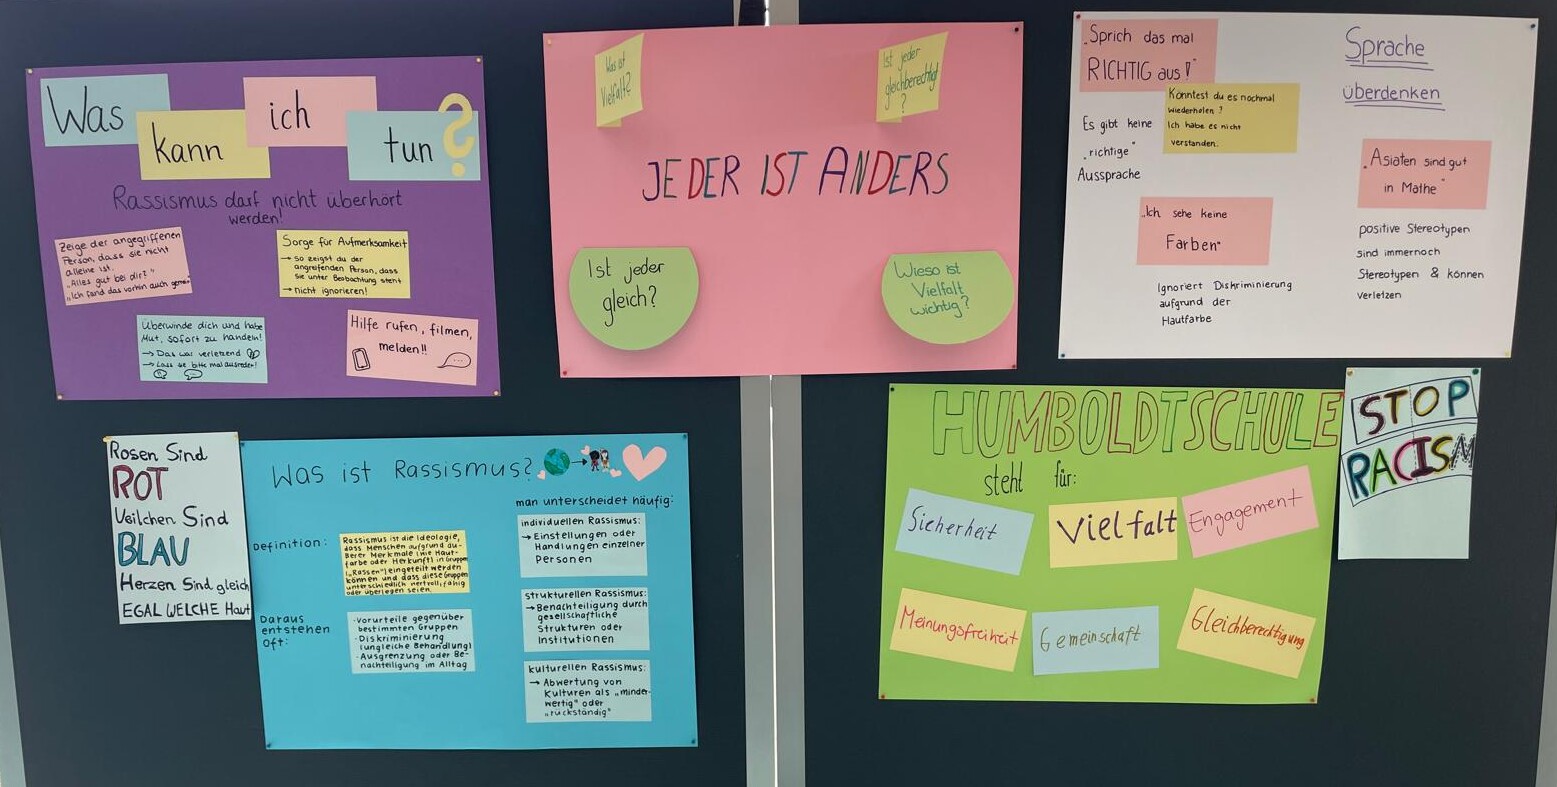 Was
kann
ich
tun?
Rassismus darf nicht überhört
werden!
Zeige der angegriffenen
Person, dass sie nicht
alleine ist.
"Alles gut bei dir?"
"Ich fand das vorhin auch gemein"
Sorge für Aufmerksamkeit
→ so zeigst du der
angreifenden Person, dass
sie unter Beobachtung steht
→ nicht ignorieren!
Überwinde dich und habe
Mut, sofort zu handeln!
→ Das war verletzend
→ Lass sie bitte mal ausreden!
Hilfe rufen, filmen,
melden!!
Was ist
Vielfalt?
Ist jeder
gleichberechtigt
?
JEDER IST ANDERS
Ist jeder
gleich?
Wieso ist
Vielfalt
wichtig?
"Sprich das mal
RICHTIG aus!"
Könntest du es nochmal
wiederholen?
Ich habe es nicht
verstanden.
Es gibt keine
"richtige"
Aussprache
Sprache
überdenken
"Ich sehe keine
Farben"
Ignoriert Diskriminierung
aufgrund der
Hautfarbe
"Asiaten sind gut
in Mathe"
positive Stereotypen
sind immernoch
Stereotypen & können
verletzen
Rosen Sind
ROT
Veilchen Sind
BLAU
Herzen Sind gleich
EGAL WELCHE Haut
Was ist Rassismus?
Definition:
Rassismus ist die Ideologie,
dass Menschen aufgrund äu-
ßerer Merkmale (wie Haut-
farbe oder Herkunft) in Gruppen
("Rassen") eingeteilt werden
können und dass diese Gruppen
unterschiedlich wertvoll, fähig
oder überlegen seien.
Daraus
entstehen
oft:
·Vorurteile gegenüber
bestimmten Gruppen
·Diskriminierung
(ungleiche Behandlung)
·Ausgrenzung oder Be-
nachteiligung im Alltag
man unterscheidet häufig:
individuellen Rassismus:
→ Einstellungen oder
Handlungen einzelner
Personen
strukturellen Rassismus:
→ Benachteiligung durch
gesellschaftliche
Strukturen oder
Institutionen
kulturellen Rassismus:
→ Abwertung von
Kulturen als "minder-
wertig" oder
"rückständig"
HUMBOLDTSCHULE
steht für:
Sicherheit
Vielfalt
Engagement
Meinungsfreiheit
Gemeinschaft
Gleichberechtigung
STOP
RACISM